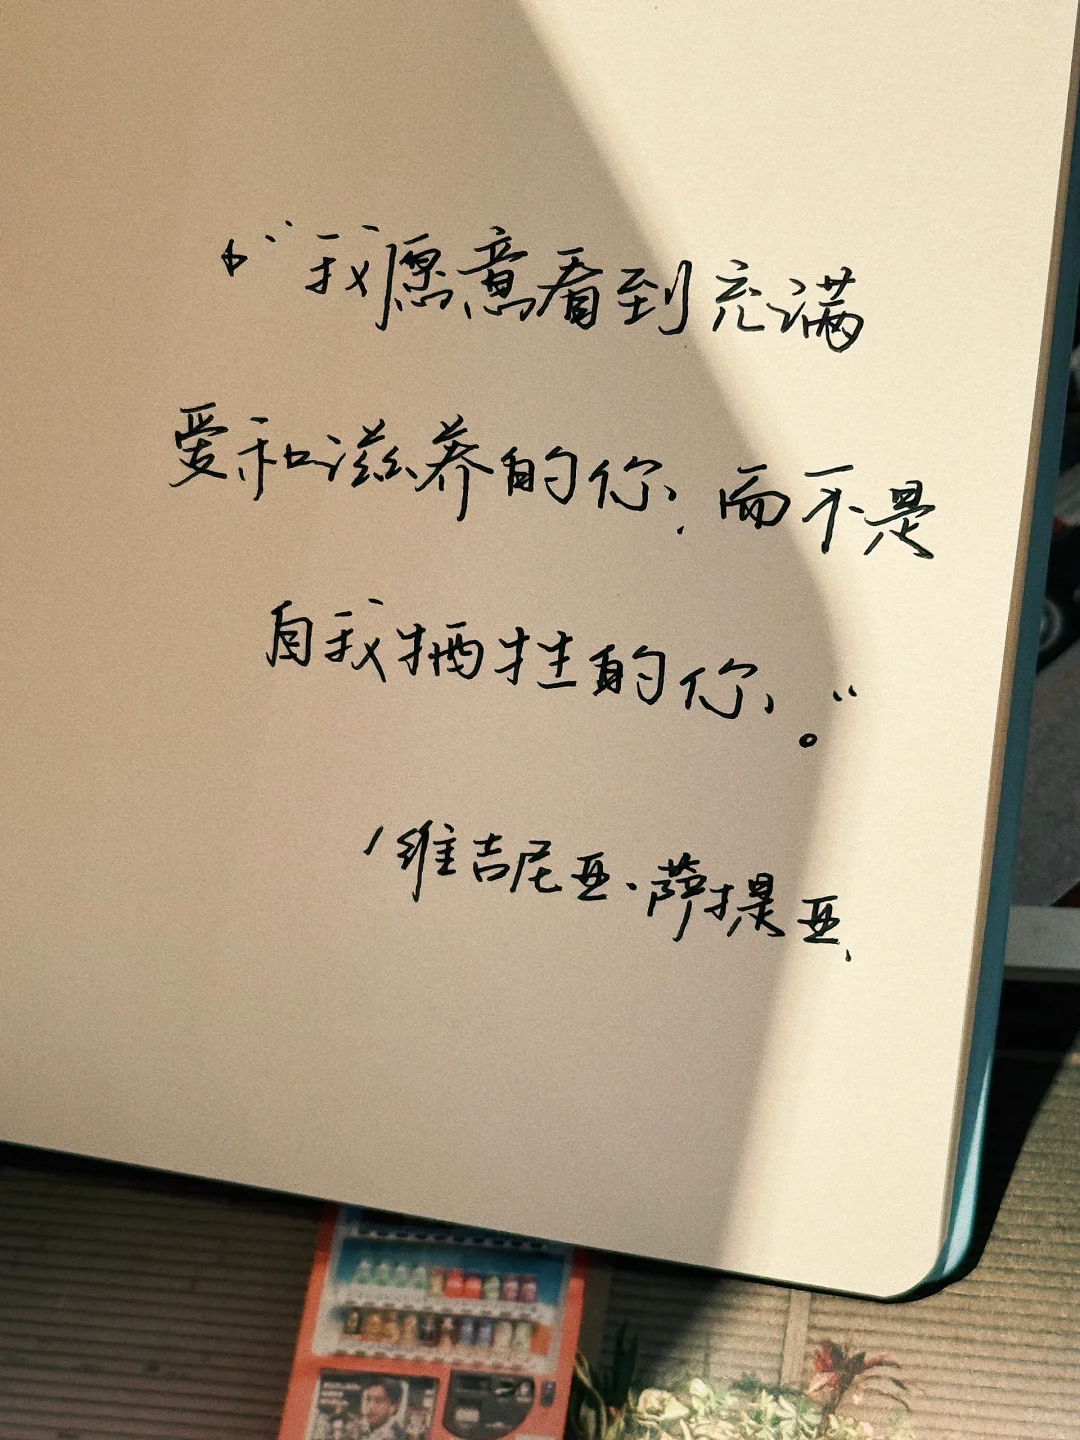 “我愿意看到充满
爱和滋养的你，而不是
自我牺牲的你。”
/维吉尼亚·萨提亚